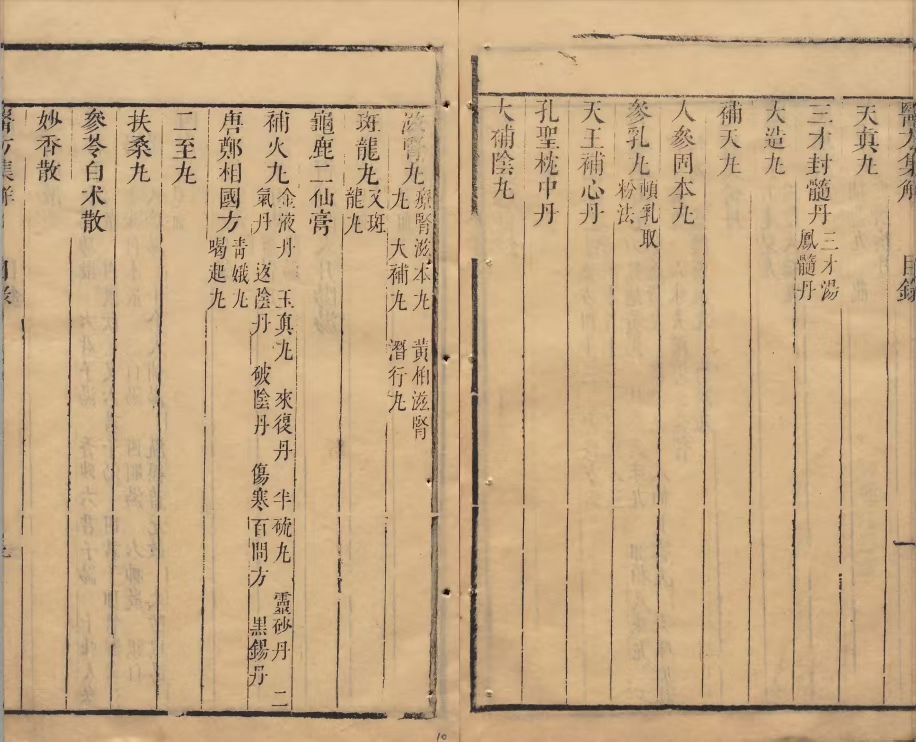 醫方集解 目錄 一
天真丸
三才封髓丹 三才湯 鳳髓丹
大造丸
補天丸
人參固本丸
參乳丸 頓乳取粉法
天王補心丹
孔聖枕中丹
大補陰丸
滋腎丸 療腎滋本丸 黃柏滋腎丸 大補丸 潛行丸
斑龍丸 又斑龍丸
龜鹿二仙膏
補火丸 金液丹 玉真丸 來復丹 半硫丸 靈砂丹 二氣丹 返陰丹 破陰丹 傷寒百問方 黑錫丹
唐鄭相國方 青娥丸 喝起丸
二至丸
扶桑丸
參苓白术散
妙香散
醫方集解 目錄
10